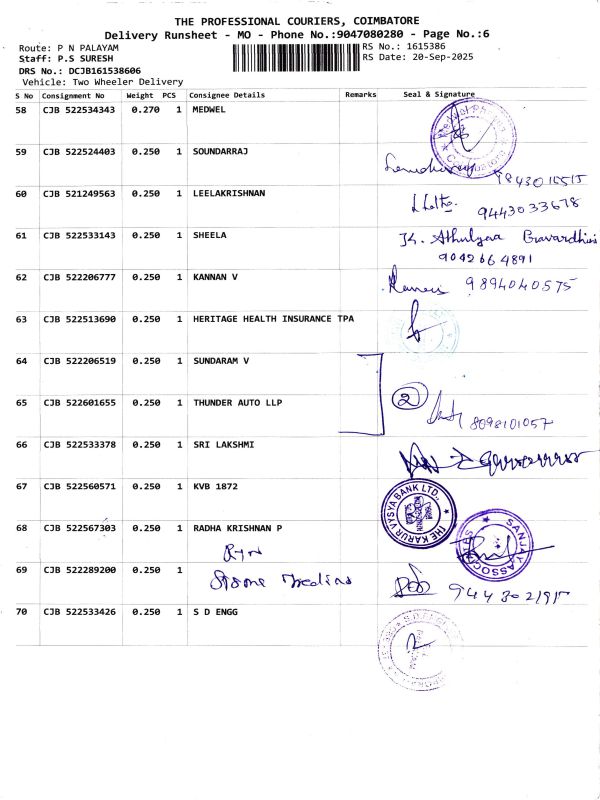 THE PROFESSIONAL COURIERS, COIMBATORE
Delivery Runsheet - MO - Phone No.:9047080280 - Page No.:6
Route: P N PALAYAM
RS No.: 1615386
Staff: P.S SURESH
RS Date: 20-Sep-2025
DRS No.: DCJB161538606
Vehicle: Two Wheeler Delivery
S No Consignment No Weight PCS Consignee Details Remarks Seal & Signature
58 CJB 522534343 0.270 1 MEDWEL
59 CJB 522524403 0.250 1 SOUNDARRAJ
60 CJB 521249563 0.250 1 LEELAKRISHNAN
9443033678
61 CJB 522533143 0.250 1 SHEELA
9042664891
62 CJB 522206777 0.250 1 KANNAN V
9894040575
63 CJB 522513690 0.250 1 HERITAGE HEALTH INSURANCE TPA
64 CJB 522206519 0.250 1 SUNDARAM V
65 CJB 522601655 0.250 1 THUNDER AUTO LLP
2
8098101057
66 CJB 522533378 0.250 1 SRI LAKSHMI
67 CJB 522560571 0.250 1 KVB 1872
THE KARUR VYSYA BANK LTD.,
68 CJB 522567303 0.250 1 RADHA KRISHNAN P
SANJAY ASSOCIATES
69 CJB 522289200 0.250 1
70 CJB 522533426 0.250 1 S D ENGG